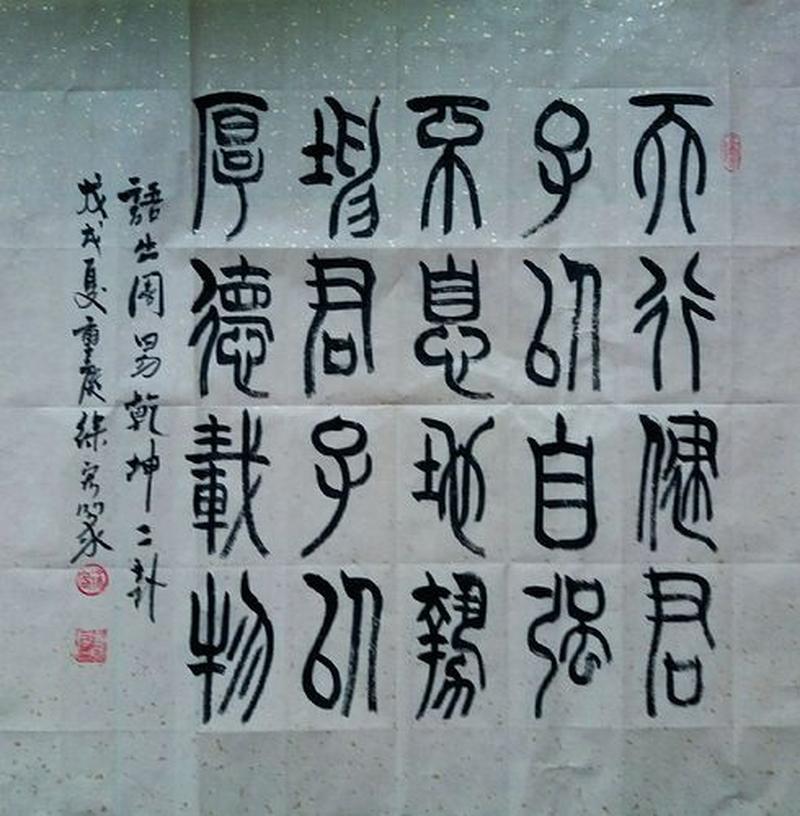 天行健君
子以自强
不息地勢
坤君子以
厚德載物
語出周易乾坤二卦
戊戌夏重慶徐篆